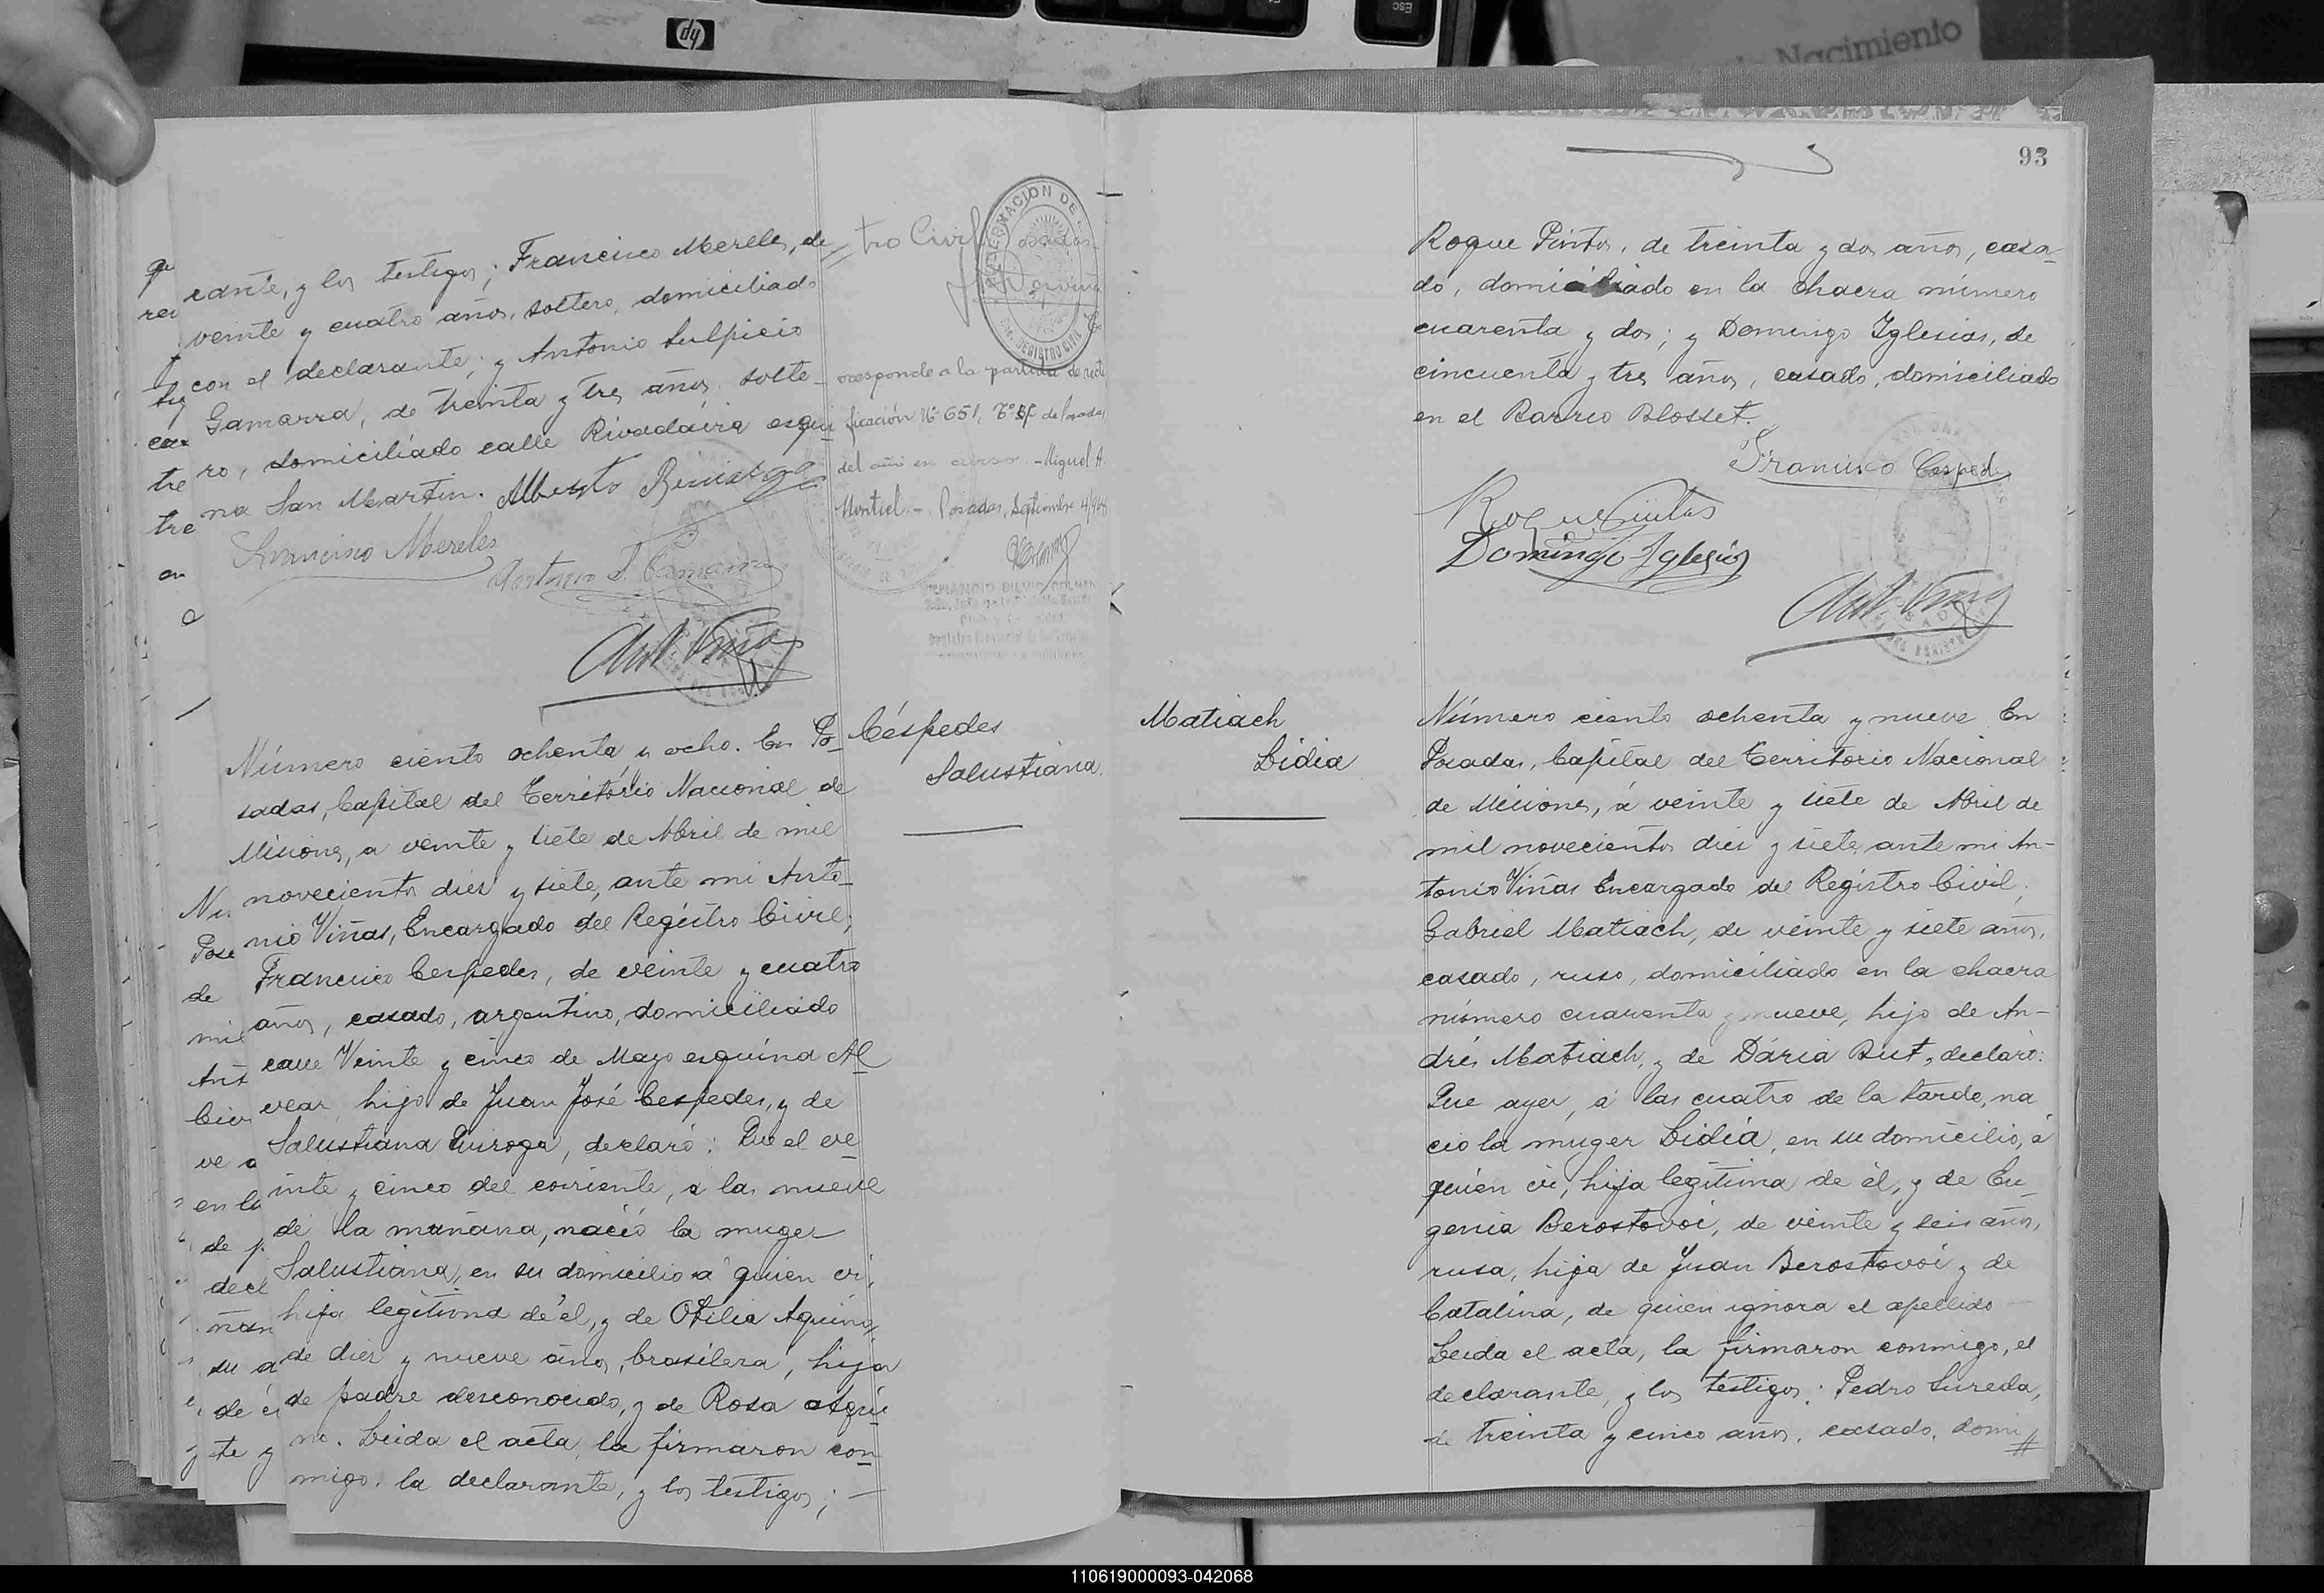 hp
ESC
Nacimiento
93
rante, y los testigos; Francisco Mereles, de
veinte y cuatro años, soltero, domiciliado
con el declarante; y Antonio Sulpicio
Gamarra, de treinta y tres años, solte-
ro, domiciliado calle Rivadavia esqui
na San Martin. Alberto
Francisco Mereles
Antonio S. Gamarra
Ant. Viñas
tro Civil Posadas
GOBERNACION DE
REGISTRO CIVIL
orresponde a la partida de recti
ficación Nº 651, Tº de Posadas
del año en curso. - Miguel A.
Montiel. - Posadas, Septiembre 4/968
Número ciento ochenta y ocho. En Po-
sadas, Capital del Território Nacional de
Misiones, a veinte y siete de Abril de mil
novecientos diez y siete, ante mi Anto-
nio Viñas, Encargado del Registro Civil;
Francisco Cespedes, de veinte y cuatro
años, casado, argentino, domiciliado
calle Veinte y cinco de Mayo esquina Al
vear, hijo de Juan José Cespedes, y de
Salustiana Quiroga, declaró: Que el ve
inte y cinco del corriente, a las nueve
de la mañana, nació la muger
Salustiana, en su domicilio a quien vi,
hija legitima de él, y de Otilia Aquino,
de diez y nueve años, brasilera, hija
de padre desconocido, y de Rosa Aqui
no. Leida el acta, la firmaron con
migo, la declarante, y los testigos; —
Céspedes
Salustiana.
Roque Pintos, de treinta y dos años, casa-
do, domiciliado en la chacra número
cuarenta y dos; y Domingo Iglesias, de
cincuenta y tres años, casado, domiciliado
en el Barrio Blosset.
Francisco Cespedes
Roque Pintos
Domingo Iglesias
Ant. Viñas
Matiach
Lidia
Número ciento ochenta y nueve. En
Posadas, Capital del Territorio Nacional
de Misiones, á veinte y siete de Abril de
mil novecientos diez y siete, ante mi An-
tonio Viñas Encargado del Registro Civil;
Gabriel Matiach, de veinte y siete años,
casado, ruso, domiciliado en la chacra
número cuarenta y nueve, hijo de An-
drés Matiach, y de Dária But, declaró:
Que ayer, á las cuatro de la tarde, na
ció la muger Lidia, en su domicilio, á
quien vi, hija legitima de él, y de Eu-
genia Berostovoi, de veinte y seis años,
rusa, hija de Juan Berostovoi y de
Catalina, de quien ignora el apellido
Leida el acta, la firmaron conmigo, el
declarante, y los testigos: Pedro Sureda,
de treinta y cinco años, casado, domi
110619000093-042068